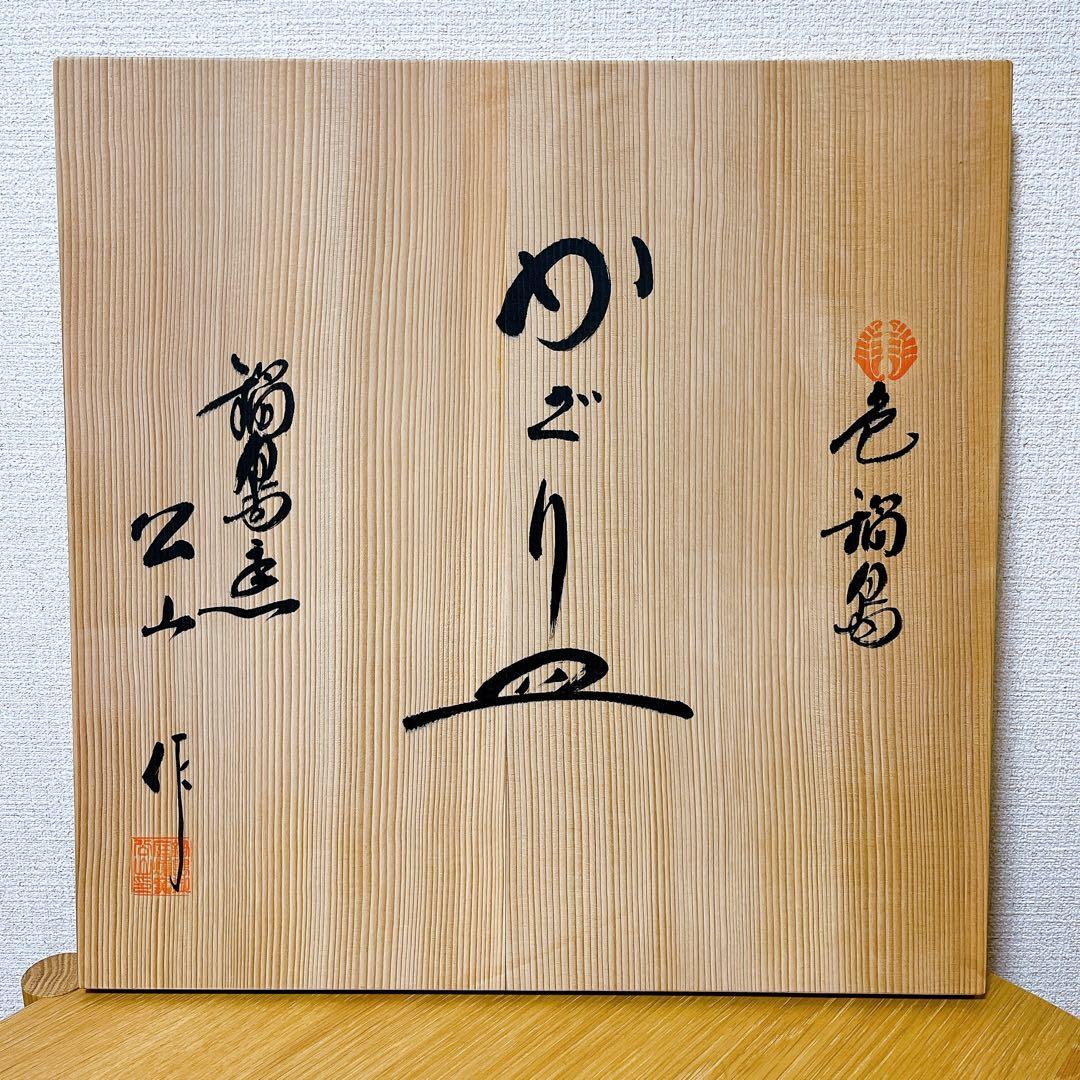 色鍋島
かざり皿
鍋島窯
公山 作